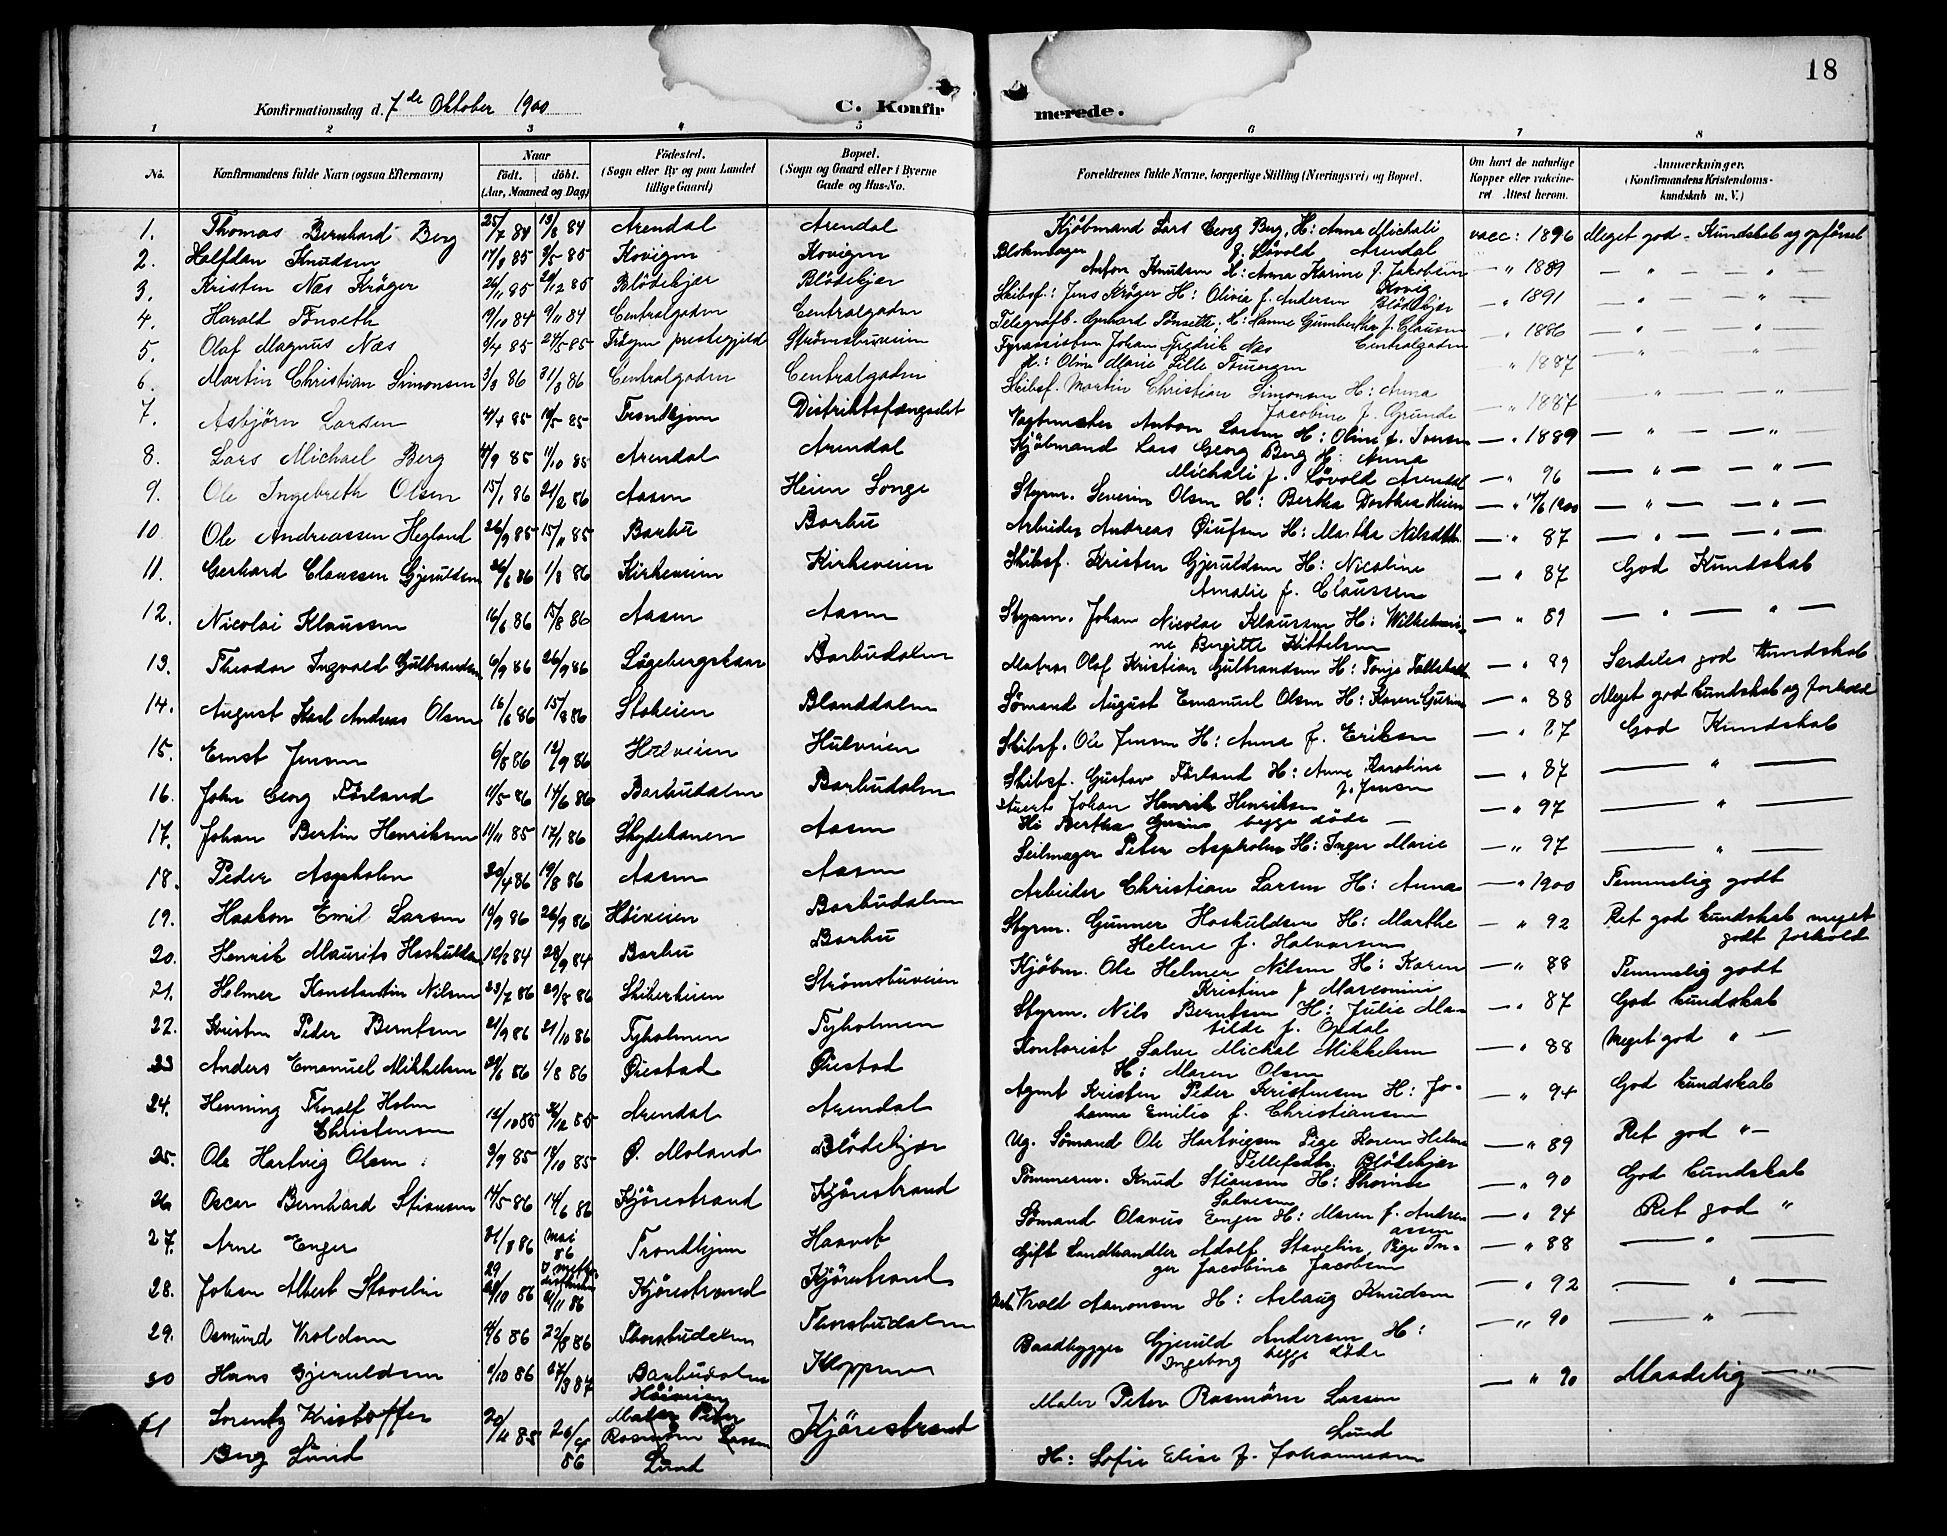 18
Konfirmationsdag d. 7de Oktober 1900
C. Konfirmerede.
1 2 3 4 5 6 7 8
No. Konfirmandens fulde Navn (ogsaa Efternavn) Naar født. døbt. (Aar, Maaned og Dag) Fødested. (Sogn eller By og paa Landet tillige Gaard) Bopæl. (Sogn og Gaard eller i Byerne Gade og Hus-No. Forældrenes fulde Navne, borgerlige Stilling (Næringsvei) og Bopæl. Om havt de naturlige Kopper eller vakcineret. Attest herom. Anmærkninger. (Konfirmandens Kristendomskundskab m. V.)
1. Thomas Bernhard Berg 25/7 84 Arendal Arendal Kjøbmand Lars Georg Berg, H: Anna Michali f. Løvold Arendal vacc: 1896 Meget god Kundskab og opførsel
2. Halfdan Knudsen 85 85 Anton Knudsen H: Anna Karine f. Jakobsen — " 1889 — " — — " —
3. Kristen Næs Krøger 26/11 85 29/12 85 Blødekjær Blødekjær Skibsf.: Jens Krøger H: Olivia f. Andersen Blødekjær — " 1891 — " — — " —
4. Harald Tønseth 19/10 84 9/11 84 Centralgaden Centralgaden Telegrafb. Gerhard Tønseth, H: Hanne f. Clausen Centralgaden — " 1886 — " — — " —
5. Olaf Magnus Næs 3/4 85 85 prestegjeld Strømsbuveien Fyrassistent Johan Fredrik Næs H.: Oline Marie " 1887 — " — — " —
6. Martin Christian Simonsen 3/3 86 31/3 86 Centralgaden Centralgaden Skibsf. Martin Christian Simonsen H: Anna Jacobine f. Grunde — " 1887 — " — — " —
7. Asbjørn Larsen 4/4 85 19/5 85 Trondhjem Distriktsfængselet Vagtmester Anton Larsen H: Oline f. Iversen — " 1889 — " — — " —
8. Lars Michael Berg 9 85 11/10 85 Arendal Arendal Kjøbmand Lars Georg Berg H: Anna Michali f. Løvold Arendal — " 96 — " — — " —
9. Ole Ingebreth Olsen 15/1 86 21/2 86 Aasen Heien Longe Styrm. Severin Olsen H: Bertha Dorthea Heien — " 14/6 1900 — " — — " —
10. Ole Andreassen Hegland 26/9 85 15/11 85 Barbu Barbu Arbeider Andreas H: Martha Nilsdtr. — " 87 — " — — " —
11. Gerhard Claussen Gjeruldsen 26/6 86 1/8 86 Kirkeveien Kirkeveien Skibsf. Kristen Gjeruldsen H: Nicoline Amalie f. Claussen — " 87 God Kundskab
12. Nicolai Klaussen 14/6 86 15/8 86 Aasen Aasen Styrm. Johan Nicolai Klaussen H: Wilhelmine Birgitte Kittelsen — " 89 — " — " —
13. Theodor Ingvald Gulbrandsen 6/9 86 26/9 86 Barbudalen Matros Olaf Kristian Gulbrandsen H: Tonje — " 89 Særdeles god Kundskab
14. August Karl Andreas Olsen 16/6 86 15/8 86 Stokeien Blanddalen Sømand August Emanuel Olsen H: Karen — " 88 Meget god kundskab og forhold
15. Ernst Jensen 6/8 86 12/9 86 Hulveien Hulveien Skibsf. Ole Jensen H: Anna f. Eriksen — " 87 God Kundskab
16. John Georg Førland 11/5 86 14/6 86 Barbudalen Barbudalen Skibsf. Gustav Førland H: Anne Karoline f. Jensen — " 87 — " —
17. Johan Bertin Henriksen 11/11 85 17/1 86 Skydebanen Aasen Stuert Johan Henrik Henriksen H: Bertha begge døde — — " 97 — " —
18. Peder Aspholm 30/4 86 19/8 86 Aasen Aasen Seilmager Peter Aspholm H: Inger Marie — " 97 — " —
19. Haakon Emil Larsen 12/9 86 26/9 86 Høiveien Barbudalen Arbeider Christian Larsen H: Anna — " 1900 Temmelig godt
20. Henrik Maurits Hoskuldsen 84 28/9 84 Barbu Barbu Styrm. Gunner Hoskuldsen H: Marthe Helene f. Halvorsen — " 92 Ret god kundskab meget godt forhold
21. Helmer Konstantin Nilsen 23/7 86 29/8 86 Strømsbuveien Kjøbm. Ole Helmer Nilsen H: Karen Kristine f. — " 88 Temmelig godt
22. Kristen Peder Berntsen 21/9 86 21/10 86 Tyholmen Tyholmen Styrm. Nils Berntsen H: Julie Matilde f. Opdal — " 87 God kundskab
23 Anders Emanuel Mikkelsen 29/6 86 1/8 86 Øiestad Øiestad Kontorist Salve Michal Mikkelsen H: Maren Olsen — " 88 Meget god " —
24. Henning Thoralf Holm Christensen 12/10 85 26/12 85 Arendal Arendal Agent Kristen Peder Kristensen H: Johanna Emilie f. Christiansen — " 94 God kundskab
25. Ole Hartvig Olsen 3/9 85 18/10 85 Ø. Moland Blødekjær Ug. Sømand Ole Hartvigsen Pige Karen Helene Blødekjær — " 89 Ret god " —
26 Oscar Bernhard Stiansen 14/5 86 14/6 86 Kjørestrand Kjørestrand Tømmerm. Knud Stiansen H: Salvesen — " 90 God kundskab
27. Arne Enger 31/8 86 mai 86 Trondhjem Haavet Sømand Olavus Enger H: Maren f. Andreassen — " 94 Ret god "
28. Johan Albert Stavelin 10 86 11 86 Kjørestrand Kjørestrand Gift Landhandler Adolf Stavelin, Pige Inger Jacobine Jacobsen — " 88 — " —
29. Osmund Vraldsen 6 86 22/8 86 Thorsbudalen Thorsbudalen Vrold Aanonsen H: Aslaug Knudsen — " 92 — " —
30 Hans Gjeruldsen 2/10 86 27/3 87 Barbudalen Høiveien Kloppene Baadbygger Gjeruld Andersen H: Ingeborg begge døde — " 90 — " —
31 Lorentz Kristoffer Berg Lund 20/11 85 26/4 86 Maler Peter Rosmørn Lassen Lund Kjørestrand Maler Peter Rosmørn Lassen Lund H: Sofie Elise f. Johannesen — " 90 Maadelig — " —